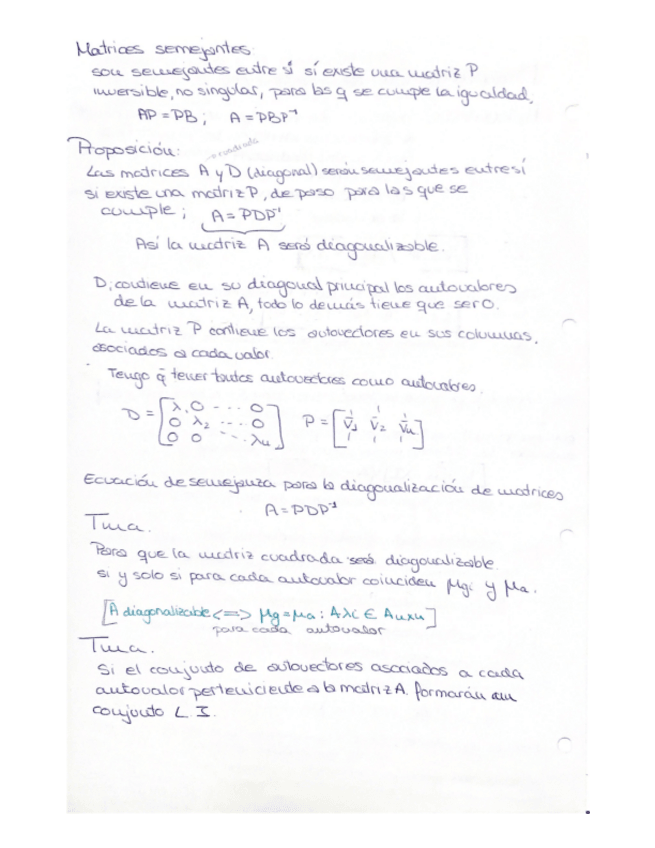 Matrices semejantes:
son semejantes entre sí si existe una matriz P
inversible, no singular, para las q se cumple la igualdad,
AP = PB; A = PBP⁻¹
→ cuadrada
Proposición:
Las matrices A y D (diagonal) serán semejantes entre sí
si existe una matriz P, de paso para las que se
cumple; A = PDP⁻¹
Así la matriz A será diagonalizable.
D; contiene en su diagonal principal los autovalores
de la matriz A, todo lo demás tiene que ser 0.
La matriz P contiene los autovectores en sus columnas,
asociados a cada valor.
Tengo q̄ tener tantos autovectores como autovalores.
D = [λ₁ 0 ... 0 P = [v̄₁ v̄₂ v̄ₙ]
0 λ₂ ... 0
0 0 ... λₙ]
Ecuación de semejanza para la diagonalización de matrices
A = PDP⁻¹
Tma.
Para que la matriz cuadrada será diagonalizable.
si y solo si para cada autovalor coinciden μgᵢ y μa.
[A diagonalizable <=> μg = μa : ∀λi ∈ Anxn]
para cada autovalor
Tma.
Si el conjunto de autovectores asociados a cada
autovalor perteniciente a la matriz A. formarán un
conjunto L.I.